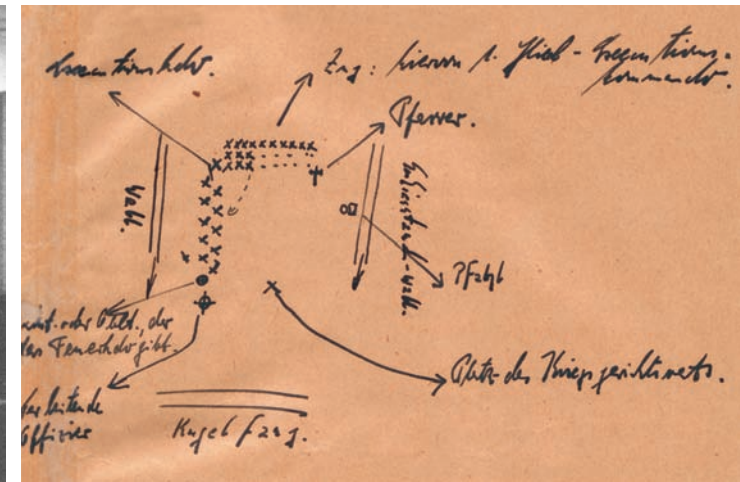 Zug: hiervon 1. Glied - Exekutions-
kommando.
Pfarrer.
Wall.
Wall.
Pfahl
oder Oblt., der
das Feuerkdo gibt.
Platz des Kriegsgerichtsrats.
der leitende
Offizier
Kugelfang.